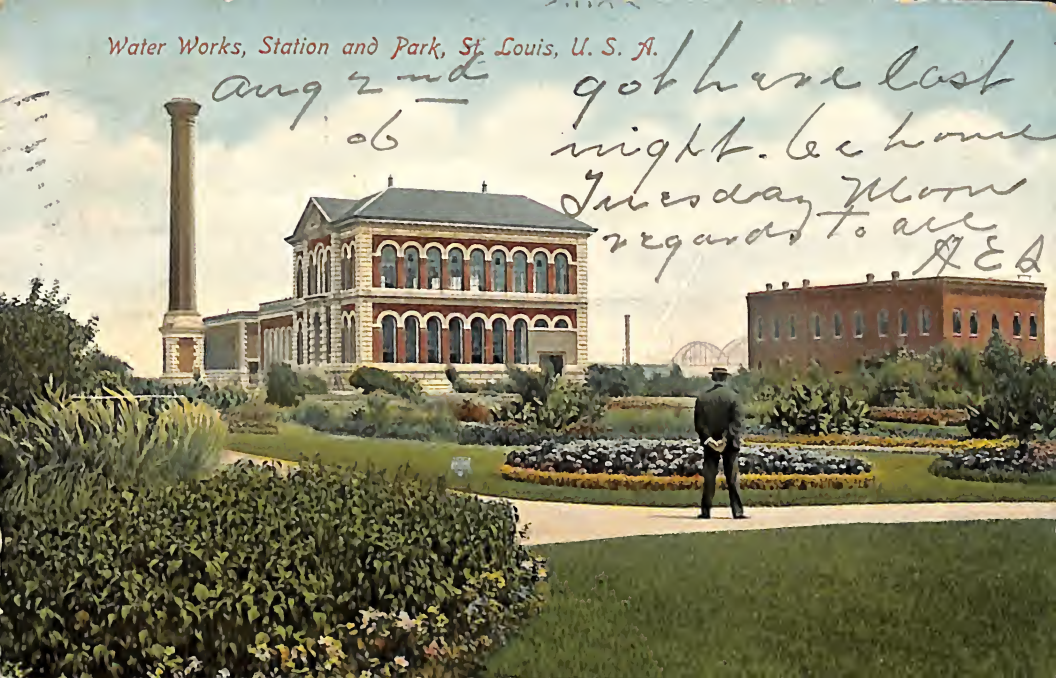 Water Works, Station and Park, St. Louis, U. S. A.
Aug 2nd
06
got here last
night. be home
Tuesday Morn
regards to all
H E A